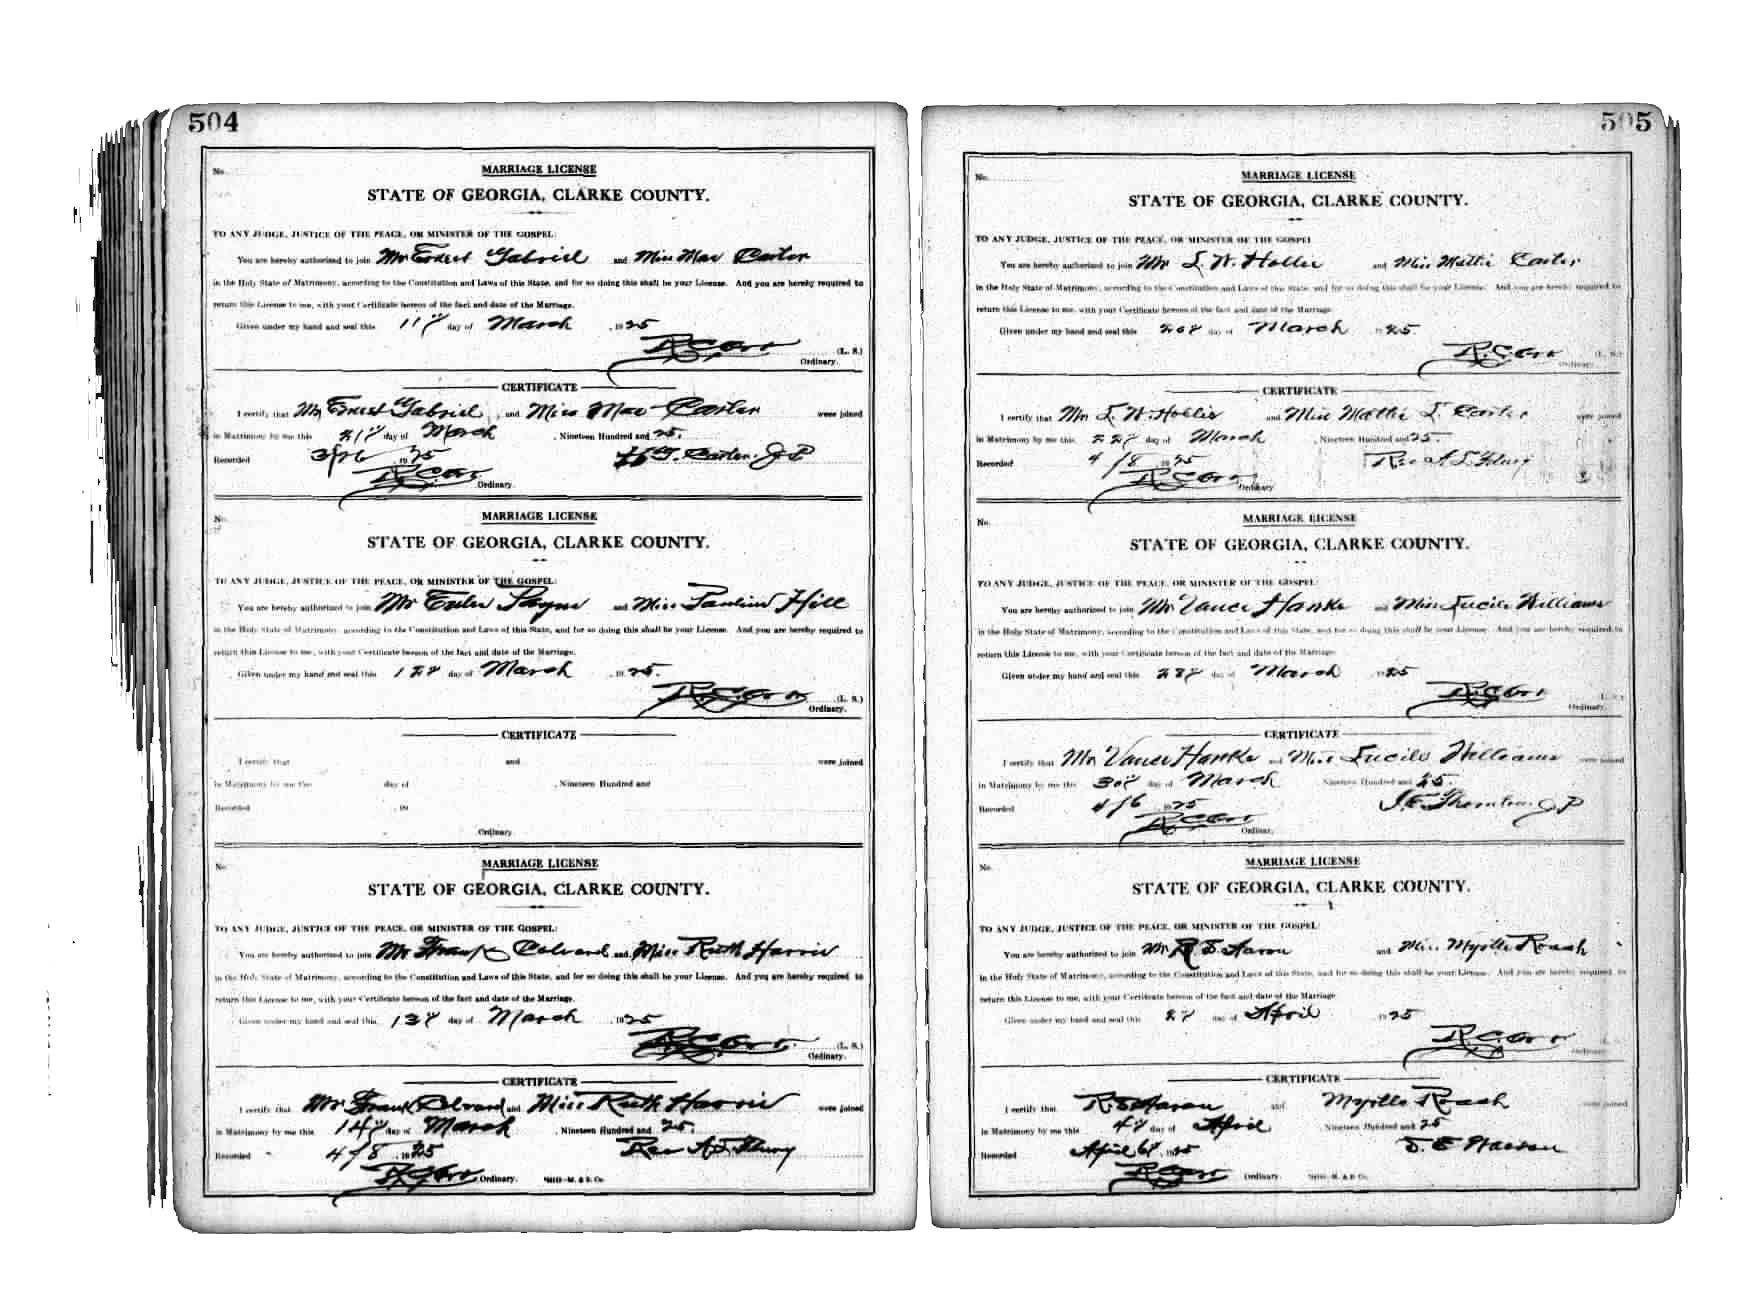 504
No.
MARRIAGE LICENSE
STATE OF GEORGIA, CLARKE COUNTY.
TO ANY JUDGE, JUSTICE OF THE PEACE, OR MINISTER OF THE GOSPEL:
You are hereby authorized to join Mr Ernest Gabriel and Miss Mae Carter
in the Holy State of Matrimony, according to the Constitution and Laws of this State, and for so doing this shall be your License. And you are hereby required to
return this License to me, with your Certificate hereon of the fact and date of the Marriage.
Given under my hand and seal this 11 day of March 1925
R.C. Orr (L. S.)
Ordinary.
CERTIFICATE
I certify that Mr Ernest Gabriel and Miss Mae Carter were joined
in Matrimony by me this 21 day of March, Nineteen Hundred and 25.
Recorded 3/26 1925 Carter J P
R.C. Orr Ordinary.
No.
MARRIAGE LICENSE
STATE OF GEORGIA, CLARKE COUNTY.
TO ANY JUDGE, JUSTICE OF THE PEACE, OR MINISTER OF THE GOSPEL:
You are hereby authorized to join Mr Payne and Miss Pauline Hill
in the Holy State of Matrimony, according to the Constitution and Laws of this State, and for so doing this shall be your License. And you are hereby required to
return this License to me, with your Certificate hereon of the fact and date of the Marriage.
Given under my hand and seal this 12 day of March 1925.
R.C. Orr (L. S.)
Ordinary.
CERTIFICATE
I certify that and were joined
in Matrimony by me this day of , Nineteen Hundred and
Recorded , 19
Ordinary.
No.
MARRIAGE LICENSE
STATE OF GEORGIA, CLARKE COUNTY.
TO ANY JUDGE, JUSTICE OF THE PEACE, OR MINISTER OF THE GOSPEL:
You are hereby authorized to join Mr Frank Colvard and Miss Ruth Harris
in the Holy State of Matrimony, according to the Constitution and Laws of this State, and for so doing this shall be your License. And you are hereby required to
return this License to me, with your Certificate hereon of the fact and date of the Marriage.
Given under my hand and seal this 13 day of March 1925
R.C. Orr (L. S.)
Ordinary.
CERTIFICATE
I certify that Mr Frank Colvard and Miss Ruth Harris were joined
in Matrimony by me this 14 day of March, Nineteen Hundred and 25.
Recorded 4/8 1925 Rev A.L. Flury
R.C. Orr Ordinary. M. & B. Co.
505
No.
MARRIAGE LICENSE
STATE OF GEORGIA, CLARKE COUNTY.
TO ANY JUDGE, JUSTICE OF THE PEACE, OR MINISTER OF THE GOSPEL
You are hereby authorized to join Mr L. W. Hollis and Miss Mattie Carter
in the Holy State of Matrimony, according to the Constitution and Laws of this State, and for so doing this shall be your License. And you are hereby required to
return this License to me, with your Certificate hereon of the fact and date of the Marriage.
Given under my hand and seal this 20 day of March 1925
R.C. Orr (L. S.)
Ordinary.
CERTIFICATE
I certify that Mr L. W. Hollis and Miss Mattie L. Carter were joined
in Matrimony by me this 22 day of March, Nineteen Hundred and 25.
Recorded 4/8 1925 Rev A L Flury
R.C. Orr Ordinary.
No.
MARRIAGE LICENSE
STATE OF GEORGIA, CLARKE COUNTY.
TO ANY JUDGE, JUSTICE OF THE PEACE, OR MINISTER OF THE GOSPEL:
You are hereby authorized to join Mr Vance Hanke and Miss Lucile Williams
in the Holy State of Matrimony, according to the Constitution and Laws of this State, and for so doing this shall be your License. And you are hereby required to
return this License to me, with your Certificate hereon of the fact and date of the Marriage.
Given under my hand and seal this 28 day of March 1925
R.C. Orr (L. S.)
Ordinary.
CERTIFICATE
I certify that Mr Vance Hanke and Miss Lucile Williams were joined
in Matrimony by me this 30 day of March Nineteen Hundred and 25.
Recorded 4/6 1925 Thornton J P
R.C. Orr Ordinary.
No.
MARRIAGE LICENSE
STATE OF GEORGIA, CLARKE COUNTY.
TO ANY JUDGE, JUSTICE OF THE PEACE, OR MINISTER OF THE GOSPEL:
You are hereby authorized to join Mr R. E. Aaron and Miss Myrtle Roach
in the Holy State of Matrimony, according to the Constitution and Laws of this State, and for so doing this shall be your License. And you are hereby required to
return this License to me, with your Certificate hereon of the fact and date of the Marriage
Given under my hand and seal this 2 day of April 1925
R.C. Orr (L.
Ordinary.
CERTIFICATE
I certify that R. E. Aaron and Myrtle Roach were joined
in Matrimony by me this 4 day of April Nineteen Hundred and 25
Recorded April 6 1925
R.C. Orr Ordinary. M. & B Co.